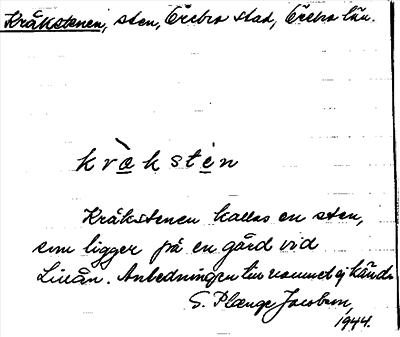 Kråkstenen, sten, Örebro stad, Örebro län.
kråkstèn
Kråkstenen kallas en sten,
som ligger på en gård vid
Lillån. Anledningen till namnet ej känd.
S. Plænge Jacobson,
1944.